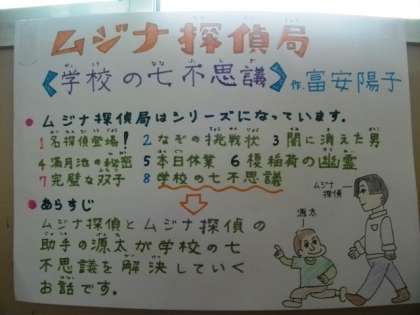 ムジナ探偵局
《学校の七不思議》作.富安陽子
● ムジナ探偵局はシリーズになっています.
1 名探偵登場! 2 なぞの挑戦状 3 闇に消えた男
4 満月池の秘密 5 本日休業 6 榎稲荷の幽霊
7 完璧な双子 8 学校の七不思議
● あらすじ
ムジナ探偵とムジナ探偵の
助手の源太が学校の七
不思議を解決していく
お話です。
ムジナ
探偵
源太